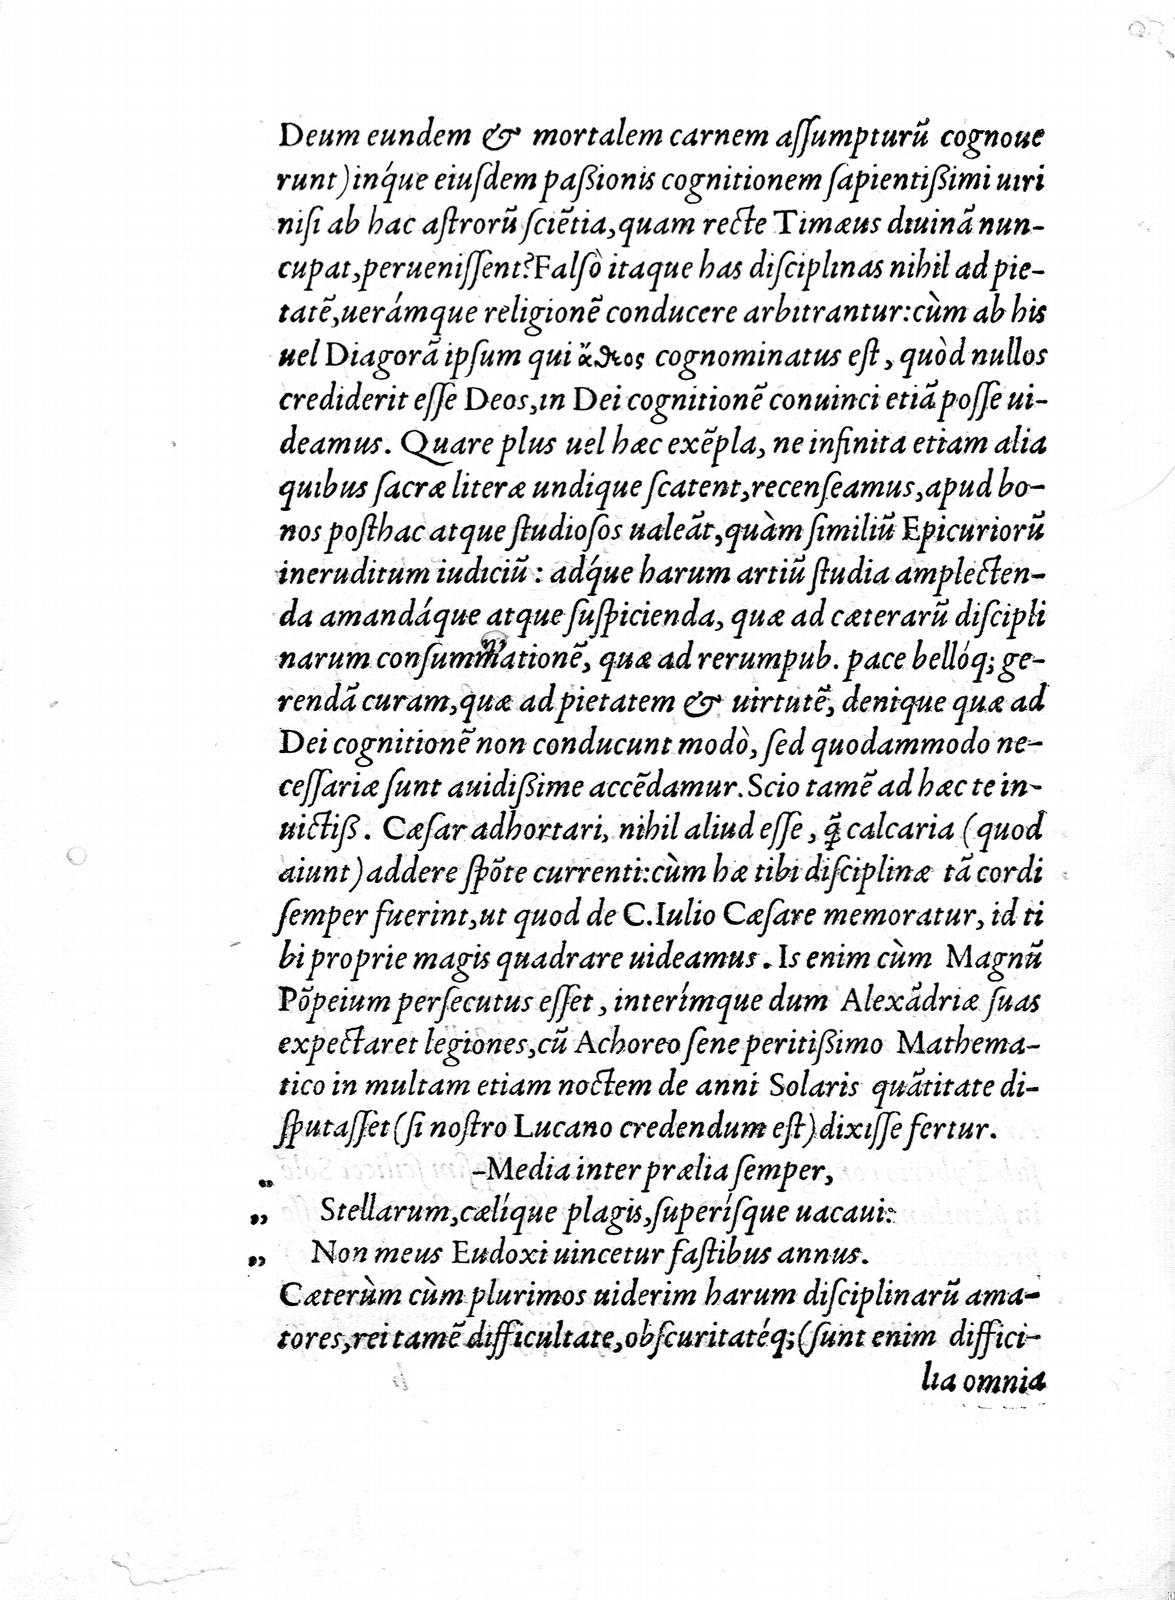 Deum eundem & mortalem carnem aſſumpturũ cognoue
runt) inq́ue eiuſdem paßionis cognitionem ſapientißimi uiri
niſi ab hac aſtrorũ ſciẽtia, quam recte Timæus diuinã nun-
cupat, perueniſſent? Falſò itaque has diſciplinas nihil ad pie-
tatẽ, uerámque religionẽ conducere arbitrantur: cùm ab his
uel Diagorã ipſum qui ἄθεος cognominatus eſt, quòd nullos
crediderit eſſe Deos, in Dei cognitionẽ conuinci etiã poſſe ui-
deamus. Quare plus uel hæc exẽpla, ne infinita etiam alia
quibus ſacræ literæ undique ſcatent, recenſeamus, apud bo-
nos poſthac atque ſtudioſos ualeãt, quàm ſimiliũ Epicuriorũ
ineruditum iudiciũ: adq́ue harum artiũ ſtudia amplecten-
da amandáque atque ſuſpicienda, quæ ad cæterarũ diſcipli
narum conſummationẽ, quæ ad rerumpub. pace bellóq; ge-
rendã curam, quæ ad pietatem & uirtutẽ, denique quæ ad
Dei cognitionẽ non conducunt modò, ſed quodammodo ne-
ceſſariæ ſunt auidißime accẽdamur. Scio tamẽ ad hæc te in-
uictiß. Cæſar adhortari, nihil aliud eſſe, q̃ calcaria (quod
aiunt) addere ſpõte currenti: cùm hæ tibi diſciplinæ tã cordi
ſemper fuerint, ut quod de C. Iulio Cæſare memoratur, id ti
bi proprie magis quadrare uideamus. Is enim cùm Magnũ
Põpeium perſecutus eſſet, interímque dum Alexãdriæ ſuas
expectaret legiones, cũ Achoreo ſene peritißimo Mathema-
tico in multam etiam noctem de anni Solaris quãtitate di-
ſputaſſet (ſi noſtro Lucano credendum eſt) dixiſſe fertur.
„ -Media inter prælia ſemper,
„ Stellarum, cælíque plagis, ſuperíſque uacaui:
„ Non meus Eudoxi uincetur faſtibus annus.
Cæterùm cùm plurimos uiderim harum diſciplinarũ ama-
tores, rei tamẽ difficultate, obſcuritatéq; (ſunt enim diffici-
lia omnia